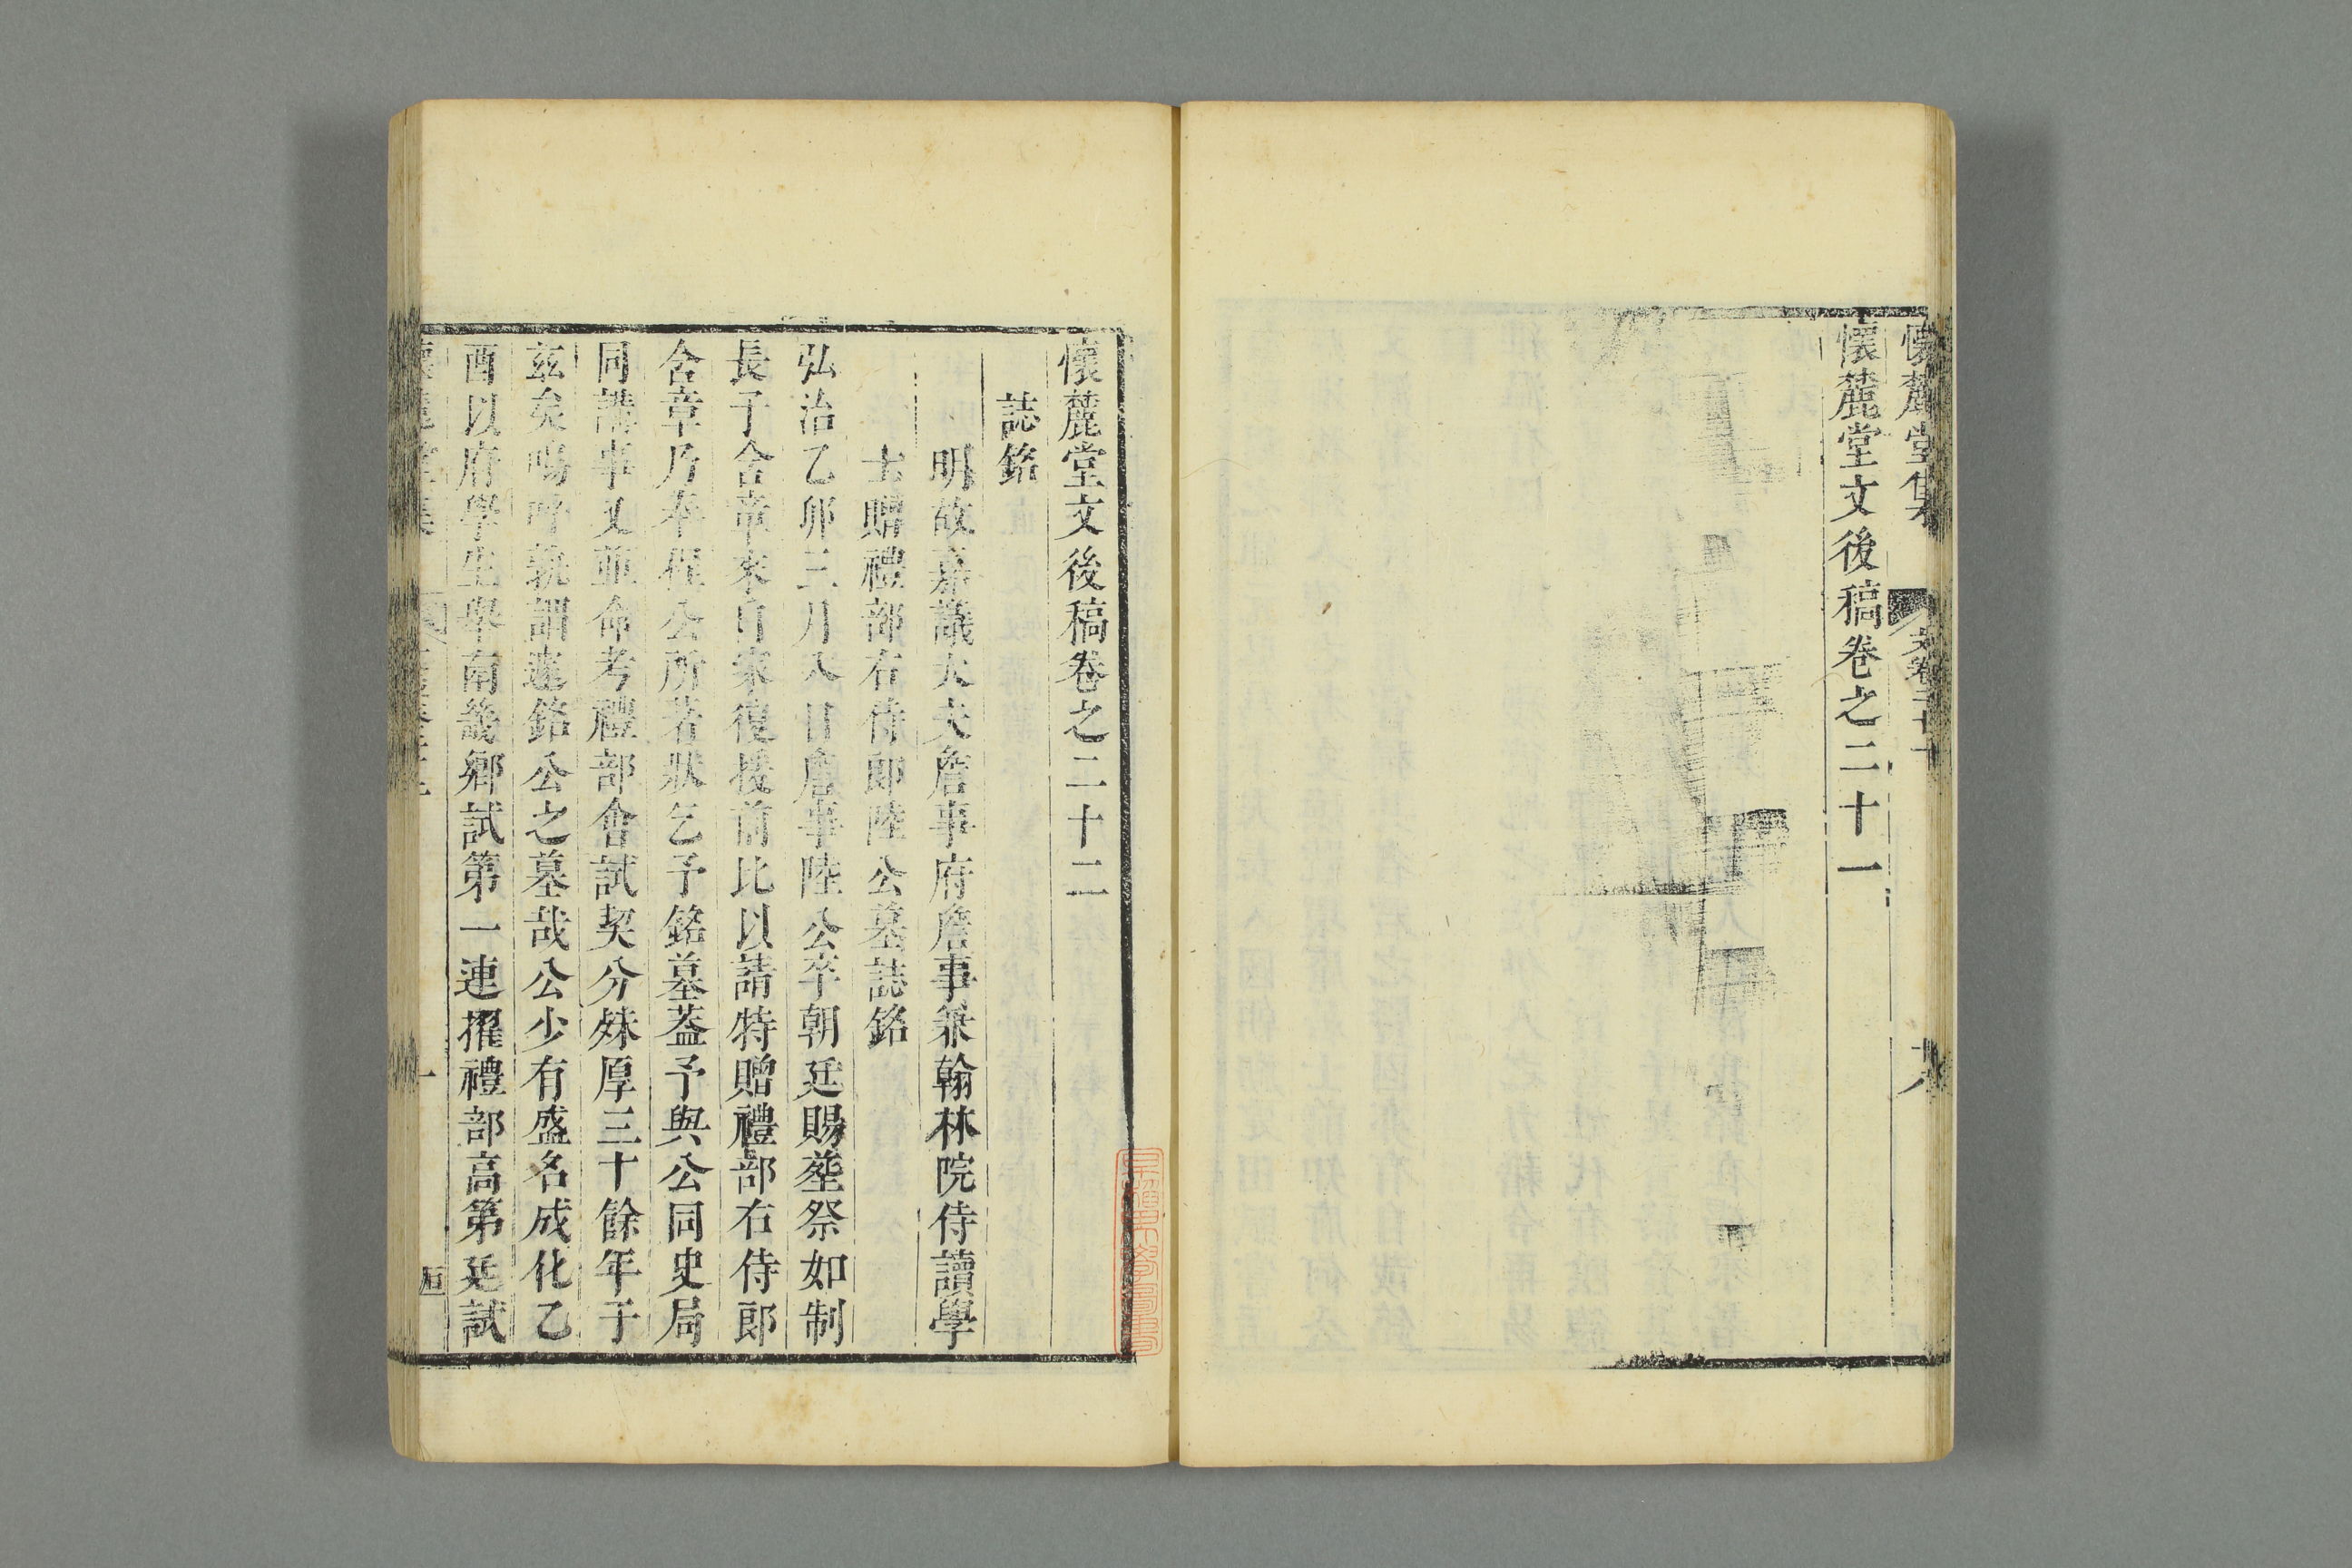 懷麓堂集
文後卷二十一
十八
懷麓堂文後稿卷之二十一
懷麓堂文後稿卷之二十二
誌銘
明故嘉議大夫詹事府詹事兼翰林院侍讀學
士贈禮部右侍郎陸公墓誌銘
弘治乙卯三月八日詹事陸公卒朝廷賜塟祭如制
長子含章來自家復援前比以請特贈禮部右侍郎
含章乃奉程公所著狀乞予銘墓葢予與公同史局
同講事又並命考禮部會試契分殊厚三十餘年于
兹矣嗚呼孰謂遽銘公之墓哉公少有盛名成化乙
酉以府學生舉南畿鄉試第一連擢禮部高第廷試
一